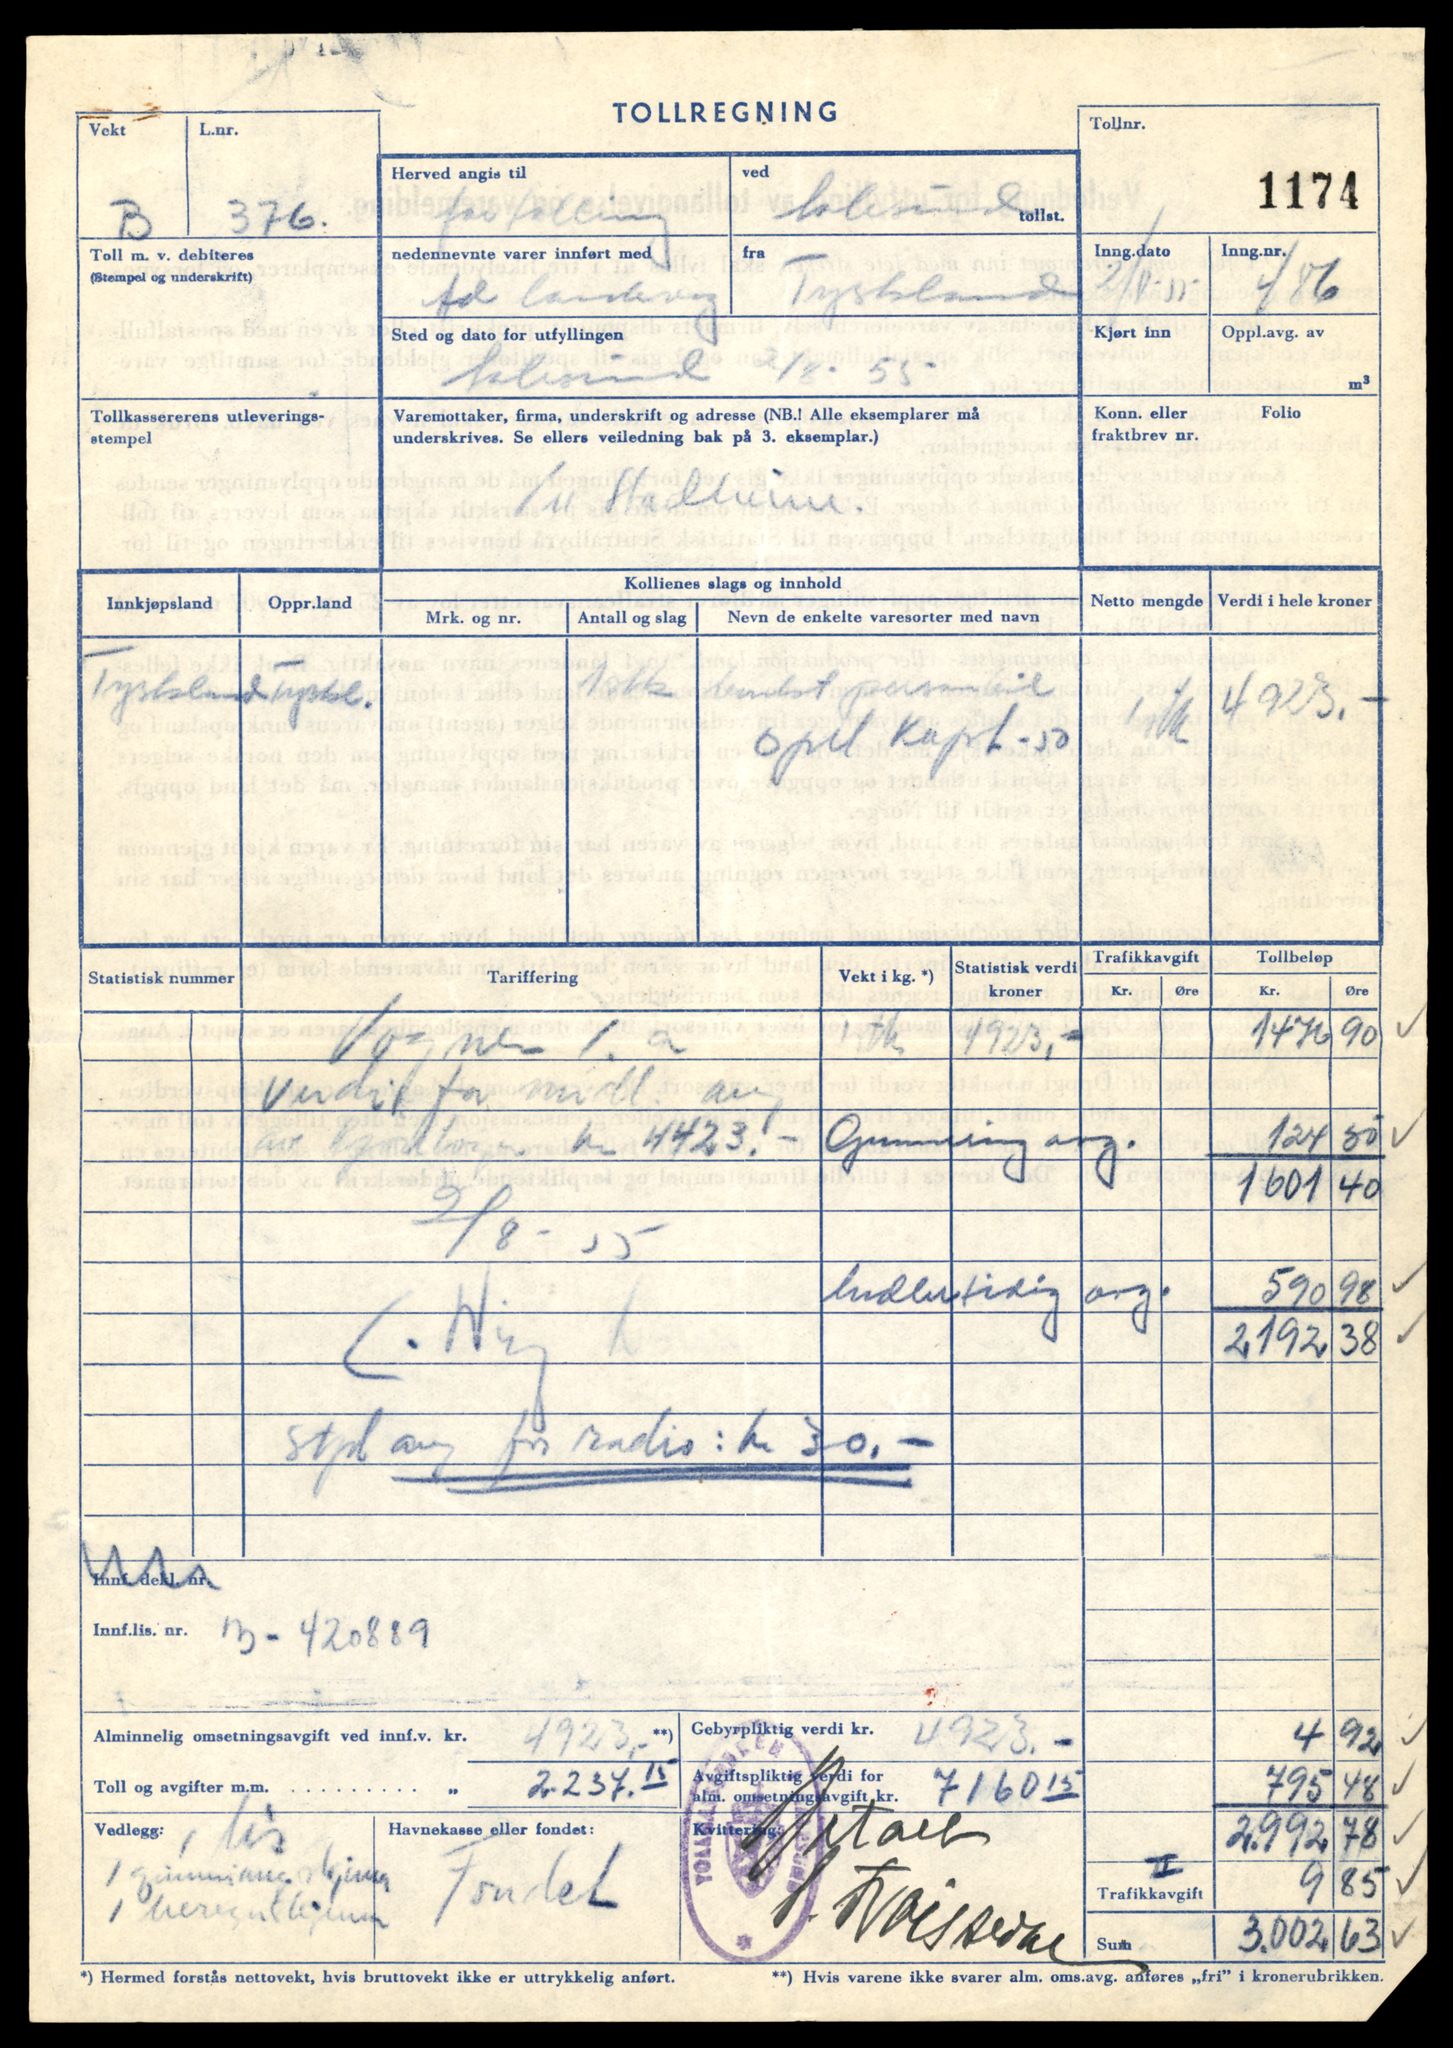 TOLLREGNING
Vekt
L.nr.
B
376.
Herved angis til
fortolling
ved
Aalesund
tollst.
Tollnr.
1174
Toll m. v. debiteres
(Stempel og underskrift)
nedennevnte varer innført med
landeveg
fra
Tyskland
Inng.dato
2/8-55
Inng.nr.
4/86
Sted og dato for utfyllingen
Aalesund 2/8-55-
Kjørt inn
Oppl.avg. av
m³
Tollkassererens utleverings-
stempel
Varemottaker, firma, underskrift og adresse (NB.! Alle eksemplarer må
underskrives. Se ellers veiledning bak på 3. eksemplar.)
Konn. eller
fraktbrev nr.
Folio
Innkjøpsland
Oppr.land
Kollienes slags og innhold
Mrk. og nr.
Antall og slag
Nevn de enkelte varesorter med navn
Netto mengde
Verdi i hele kroner
Tyskland Tyskl. 1 stk brukt personbil 1 stk 4923,-
Opel Kapt-50
Statistisk nummer
Tariffering
Vekt i kg. *)
Statistisk verdi
kroner
Trafikkavgift
Kr. Øre
Tollbeløp
Kr. Øre
Vogner 1. a 1 stk 4923,- 1476 90
Verdi for midl. avg
av kr 4423.- Gummiavg. 124 50
1601 40
2/8-55
Midlertidig avg. 590 98
2192 38
Stpl avg for radio: kr 30,-
Innf. dekl. nr.
Innf.lis. nr. B-420889
Alminnelig omsetningsavgift ved innf.v. kr. 4923,- **)
Gebyrpliktig verdi kr. 4923.-
4 92
Toll og avgifter m.m. . . . . . . . . . „ 2.237.15
Avgiftspliktig verdi for
alm. omsetningsavgift kr. 7160 15
795 48
Vedlegg: 1 lis
1 gummiavg.skjema
1 beregn.skjema
Havnekasse eller fondet:
Fondet
Kvittering:
2.992 78
II
Trafikkavgift 9 85
Sum 3.002 63
*) Hermed forstås nettovekt, hvis bruttovekt ikke er uttrykkelig anført.
**) Hvis varene ikke svarer alm. oms.avg. anføres „fri” i kronerubrikken.